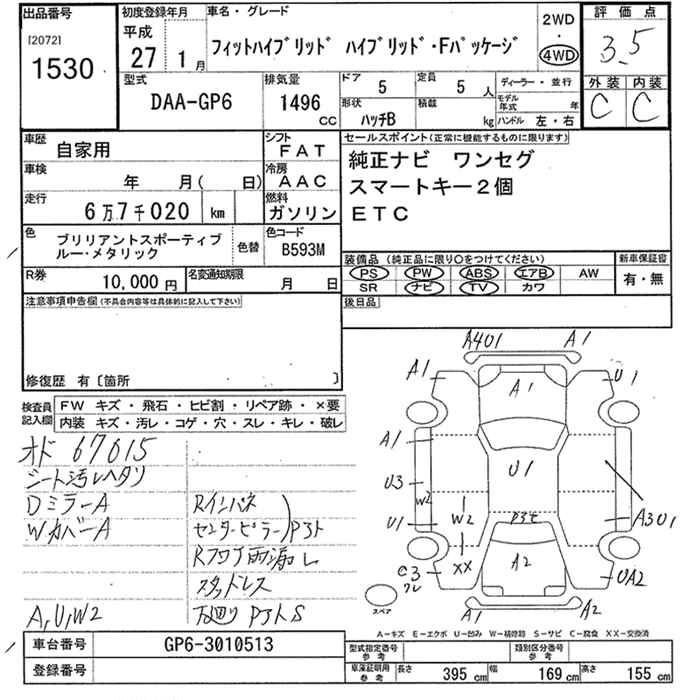 出品番号
[2072]
1530
初度登録年月
平成
27 1月
車名・グレード
フィットハイブリッド ハイブリッド・Fパッケージ
2WD
・
4WD
評価点
3.5
外装 内装
C C
型式
DAA-GP6
排気量
1496
cc
ドア
5
定員
5人
形状
ハッチB
積載
kg
ディーラー・並行
モデル年式 年
ハンドル 左・右
車歴
自家用
シフト
FAT
車検
年 月( 日)
冷房
AAC
走行
6万7千020 km
燃料
ガソリン
色
ブリリアントスポーティブ
ルー・メタリック
色替
色コード
B593M
R券
10,000円
名変通知期限
月 日
セールスポイント(正常に機能するものに限ります)
純正ナビ ワンセグ
スマートキー2個
ETC
装備品(純正品に限り○をつけてください)
PS PW ABS エアB AW
SR ナビ TV カワ
新車保証書
有・無
後日品
注意事項申告欄(不具合内容等は具体的に記入して下さい)
修復歴 有〔箇所 〕
検査員
記入欄
FW キズ・飛石・ヒビ割・リペア跡・×要
内装 キズ・汚レ・コゲ・穴・スレ・キレ・破レ
オド 67015
シート汚レヘタリ
DミラーA
WカバーA
Rインパネ
センターピラー)PJト
Rフロア雨漏レ
スタッドレス
A,U,W2
下廻り PJトS
A4U1 A1
A1 A1 U1
A1
U3 U1
W2
U1 W2 A3U1
PJモ
XX A2
C3 UA2
ワレ
スペア A1 A2
A-キズ E-エクボ U-凹み W-補修跡 S-サビ C-腐食 XX-交換済
車台番号
GP6-3010513
登録番号
型式指定番号
参考
類別区分番号
参考
車庫証明用
参考
長さ 395 cm 幅 169 cm 高さ 155 cm